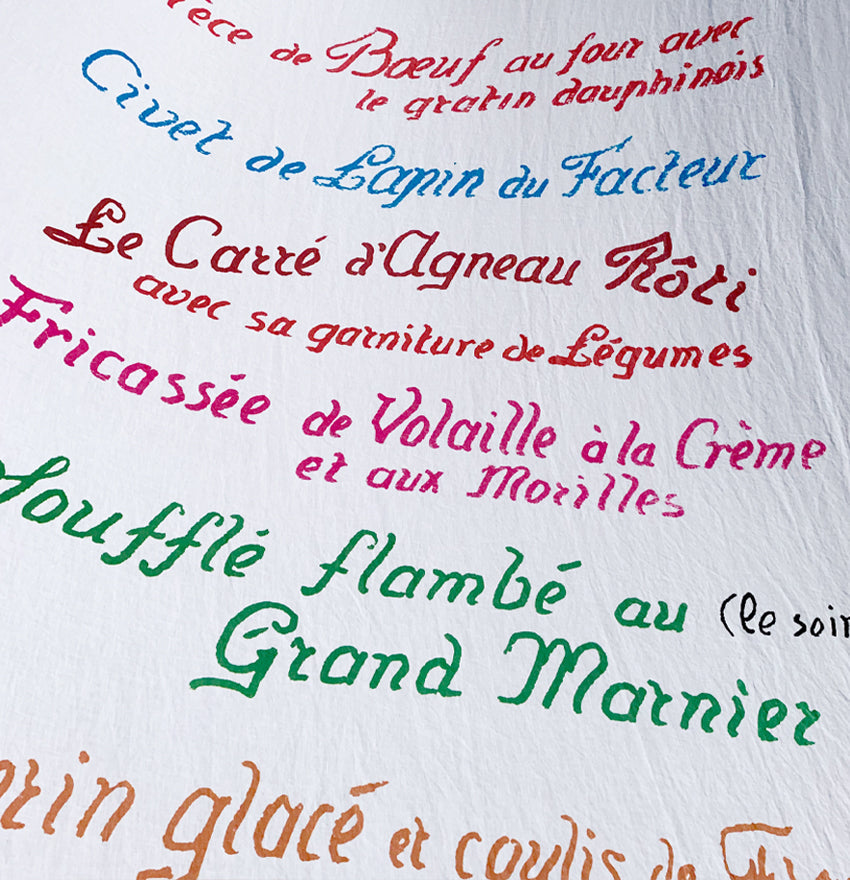 de Bœuf au four avec
le gratin dauphinois
Civet de Lapin du Facteur
Le Carré d'Agneau Rôti
avec sa garniture de Légumes
Fricassée de Volaille à la Crème
et aux Morilles
Soufflé flambé au (le soir
Grand Marnier
glacé et coulis de